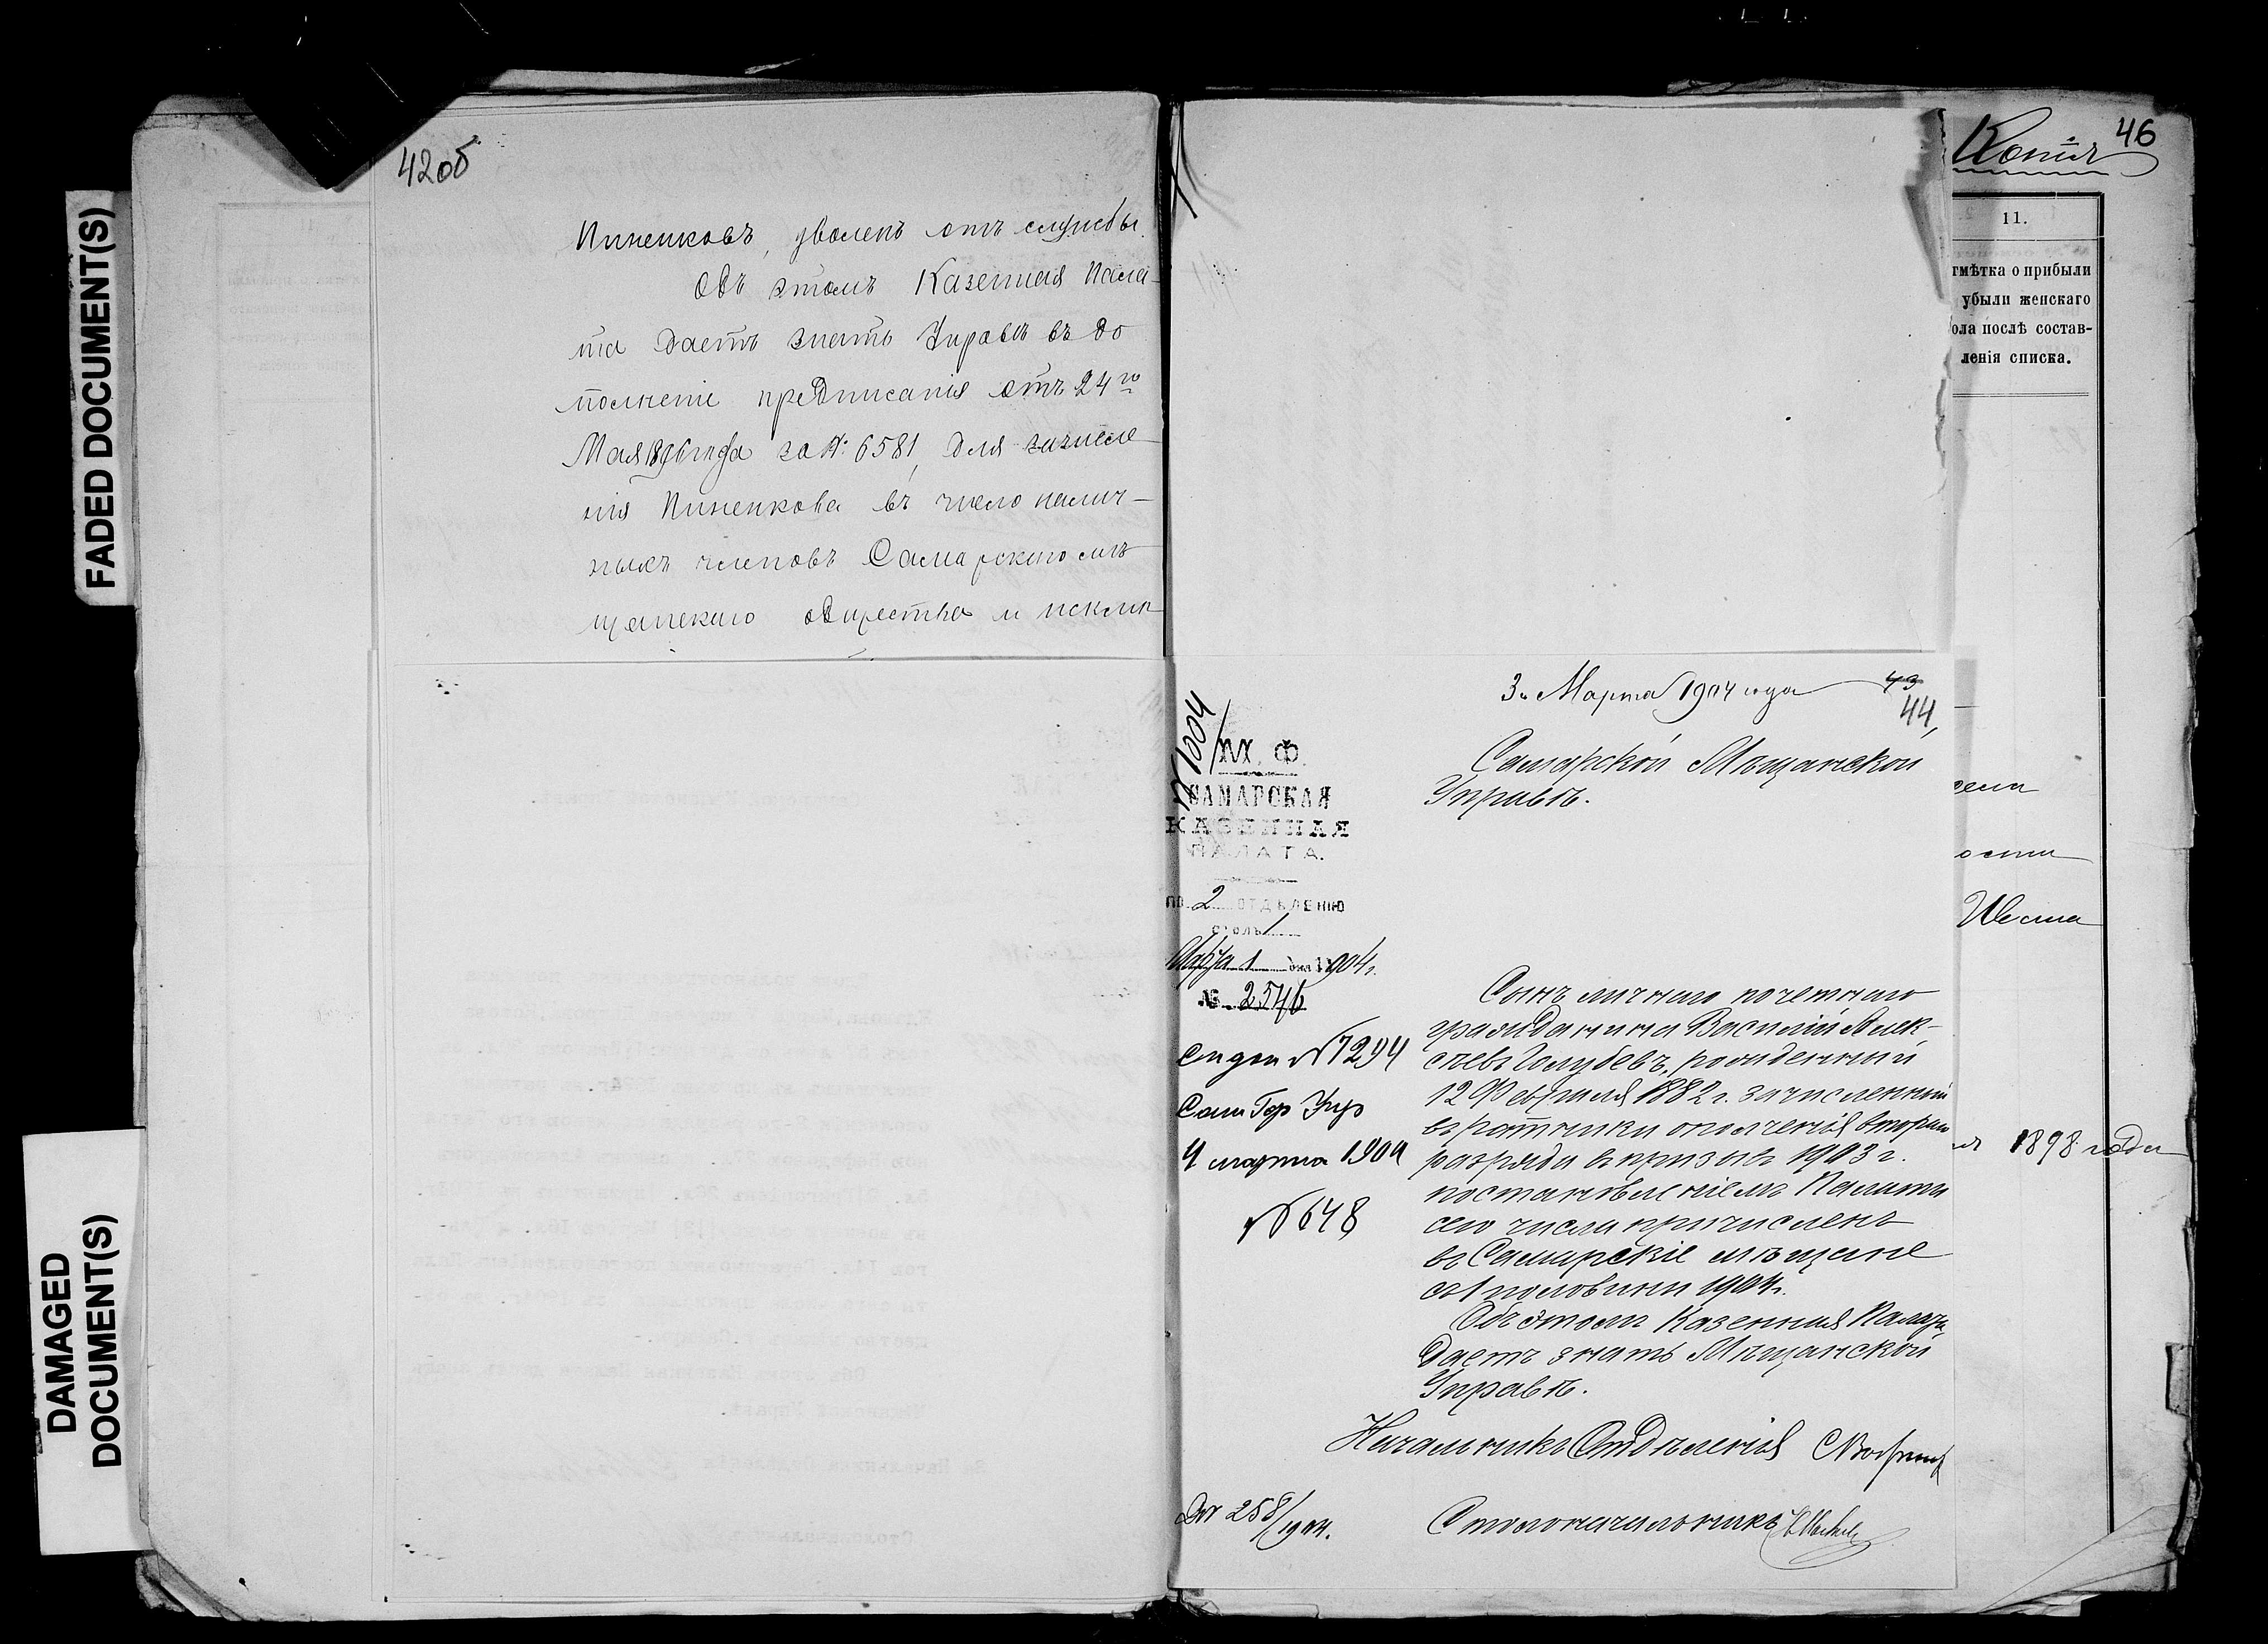 FADED DOCUMENT(S)
DAMAGED
DOCUMENT(S)
42об
Пиненковъ, уволенъ отъ службы.
Объ этомъ Казенная Пала-
та даетъ знать Управѣ въ до
полненіе предписанія отъ 24го
Мая 1896 года за № 6581, для зачисле-
нія Пиненкова въ число налич-
ныхъ членовъ Самарскаго мѣ
щанскаго общества и исклю
46
Копія
11.
тмѣтка о прибыли
убыли женскаго
ола послѣ состав-
ленія списка.
1898 года
3го Марта 1904 года
43
44
№ 1004
М. Ф.
САМАРСКАЯ
КАЗЕННАЯ
ПАЛАТА.
по 2 ОТДѢЛЕНІЮ
столъ 1
Марта 1 дня 1904 г.
№ 2546
№ 1294
Сам Гор Упр
4 марта 1904
№ 648
Самарской Мѣщанской
Управѣ.
Сынъ личнаго почетнаго
гражданина Василій Алек-
сѣевъ Голубевъ, рожденный
12 Февраля 1882 г. зачисленный
въ ратники ополченія втораго
разряда въ призывъ 1903 г.
постановленіемъ Палаты
сего числа причисленъ
въ Самарскіе мѣщане
съ 1 половины 1904 г.
Объ этомъ Казенная Палата
даетъ знать Мѣщанской
Управѣ.
Начальникъ Отдѣленія
258/1904.
Столоначальникъ